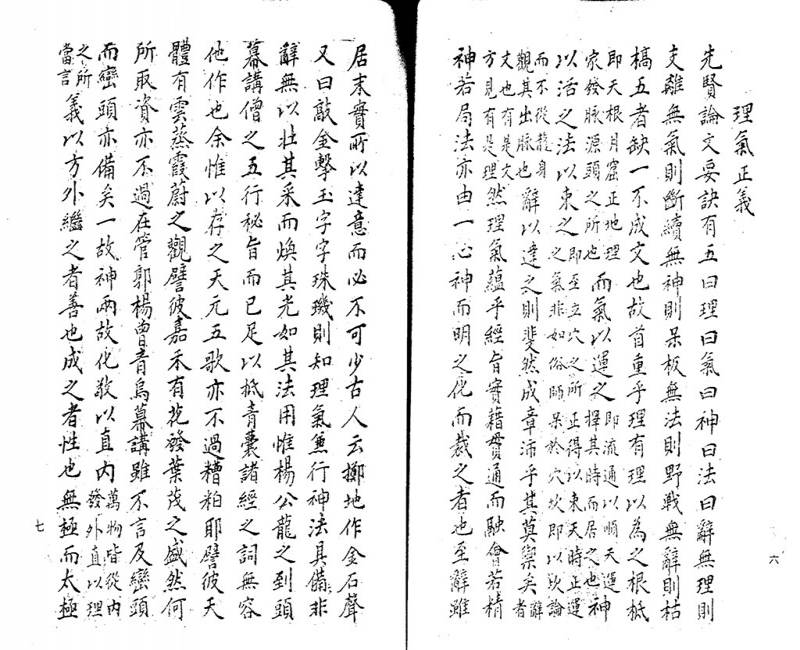 理氣正義
先賢論文要訣有五曰理曰氣曰神曰法曰辭無理則
支離無氣則斷續無神則呆板無法則野戰無辭則枯
槁五者缺一不成文也故首重乎理有理以為之根柢
即天根月窟正地理家發脉源頭之所也而氣以運之即流通以順天運擇其時而居之也神
以活之法以束之即至立穴之所正得以束天時正運之氣非如俗師呆於穴坎即以致論
而不從龍身觀其出脉也辭以達之則斐然成章沛乎其莫禦矣辭者
文也有是文方見有是理然理氣蘊乎經旨實藉貫通而融會若精
神若局法亦由一心神而明之化而裁之者也至辭雖
六
居末實所以達意而必不可少古人云擲地作金石聲
又曰敲金擊玉字字珠璣則知理氣兼行神法具備非
辭無以壯其采而煥其光如其法用惟楊公龍之到頭
幕講僧之五行秘旨而已足以柢青囊諸經之詞無容
他作也余惟以存之天元五歌亦不過糟粕耶譬彼天
體有雲蒸霞蔚之觀譬彼嘉禾有花發葉茂之盛然何
所取資亦不過在管郭楊曾青烏幕講雖不言及巒頭
而巒頭亦備矣一故神兩故化敬以直內萬物皆從內發外直以理
之所當言義以方外繼之者善也成之者性也無極而太極
七